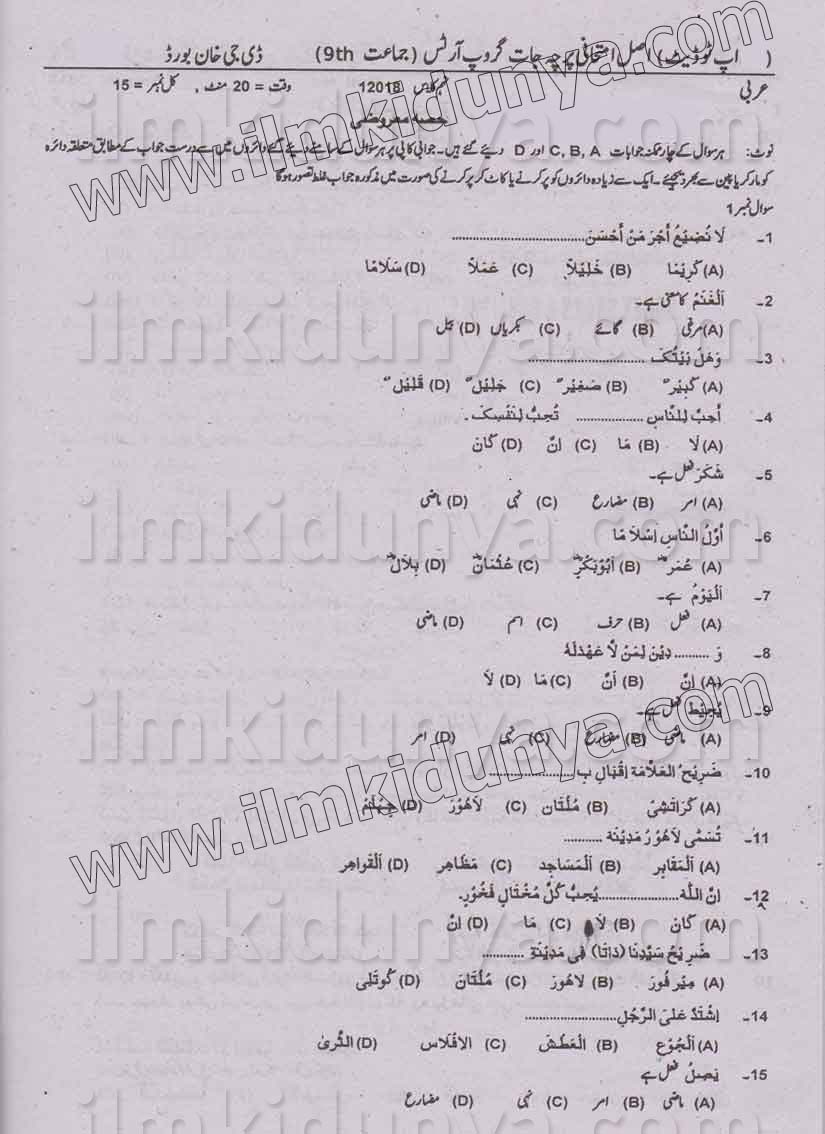 ( اپ ٹو ڈیٹ ) اصل امتحانی پرچہ جات گروپ آرٹس ( جماعت 9th ) ڈی جی خان بورڈ
عربی نہم کلاس 12018 وقت = 20 منٹ , کل نمبر = 15
حصہ معروضی
نوٹ: ہر سوال کے چار ممکنہ جوابات C, B, A اور D دیئے گئے ہیں۔ جوابی کاپی پر ہر سوال کے سامنے دیئے گئے دائروں میں سے درست جواب کے مطابق متعلقہ دائرہ
کو مارکر یا پین سے بھر دیجیئے۔ ایک سے زیادہ دائروں کو پر کرنے یا کاٹ کر پر کرنے کی صورت میں مذکورہ جواب غلط تصور ہوگا
سوال نمبر 1
1۔ لَا نُضِيْعُ اَجْرَ مَنْ اَحْسَنَ ..................
(A) كَرِيْمًا (B) خَلِيْلاً (C) عَمَلاً (D) سَلَامًا
2۔ اَلْغَنَمُ کا معنی ہے۔
(A) مرغی (B) گائے (C) بکریاں (D) بیل
3۔ وَهَلْ بَيْتُكَ ..................
(A) كَبِيْرٌ (B) صَغِيْرٌ (C) جَلِيْلٌ (D) قَلِيْلٌ
4۔ اَحِبَّ لِلنَّاسِ .................. تُحِبُّ لِنَفْسِكَ ۔
(A) لَا (B) مَا (C) اِنَّ (D) كَانَ
5۔ شَكَرَ فعل ہے۔
(A) امر (B) مضارع (C) نہی (D) ماضی
6۔ اَوَّلُ النَّاسِ اِسْلَامًا
(A) عُمَرؓ (B) اَبُوْبَكْرٍؓ (C) عُثْمَانؓ (D) بِلَالؓ
7۔ اَلْيَوْمُ ہے۔
(A) فعل (B) حرف (C) اسم (D) ماضی
8۔ وَ .......... دِيْنَ لِمَنْ لَّا عَهْدَلَهٗ
(A) اِنَّ (B) اَنَّ (C) مَا (D) لَا
9۔ يُحِيْطُ فعل ہے۔
(A) ماضی (B) مضارع (C) نہی (D) امر
10۔ ضَرِيْحُ الْعَلَّامَة اِقْبَال بِ ..................
(A) كَرَاتَشِىْ (B) مُلْتَان (C) لَاهُوْرَ (D) جِهْلَمْ
11۔ تُسَمّٰى لَاهُوْرُ مَدِيْنَه ...........
(A) اَلْمَقَابِر (B) اَلْمَسَاجِد (C) مَظَاهِر (D) اَلْقَوَاهِر
12۔ اِنَّ اللّٰهَ .................. يُحِبُّ كُلَّ مُخْتَالٍ فَخُوْرٍ.
(A) كَانَ (B) لَا (C) مَا (D) اِنَّ
13۔ ضَرِيْحُ سَيِّدِنَا (دَاتَا) فِى مَدِيْنَةِ ...........
(A) مِيْر فُوْرَ (B) لَاهُوْرَ (C) مُلْتَان (D) كُوْتَلِى
14۔ اِشْتَدَّ عَلَى الرَّجُلِ ..................
(A) اَلْجُوْعِ (B) اَلْعَطَشَ (C) الْاِفْلَاس (D) الثَّرىٰ
15۔ يَصِلُ فعل ہے
(A) ماضی (B) امر (C) نہی (D) مضارع
www.ilmkidunya.com
ilmkidunya.com
ilmkidunya.com
ilmkidunya.com
www.ilmkidunya.com
ilmkidunya.com
ilmkidunya.com